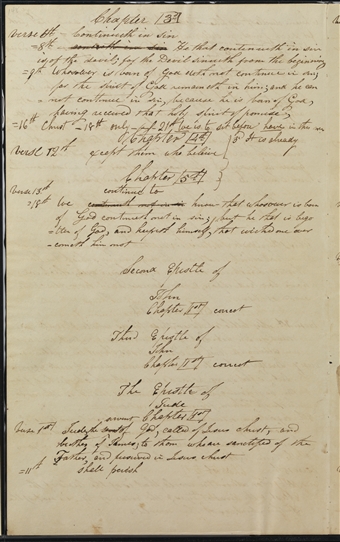 Chapter 3d
verse 6th Continueth in Sin
=8th continueth in sin He that continueth in sin
is of the devil, for the Devil sinneth from the beginning
=9th Whosoever is born of God doth not continue in sin,
for the Spirit of God remaineth in him; and he can
not continue in sin, because he is born of God,
having received that holy Spirit of promise,
=16th Christ =18th only
Chapter 4th it is already
verse 12th except them who believe
Chapter 5th
verse 13th continued to
=18th We continueth not in sin know that whosoever is born
of God continueth not in sin; but he that is begot
ten of God, and keepeth himself, that wicked one over
cometh him not
Second Epistle of
John
Chapter 1st correct
Third Epistle of
John
Chapter 1st correct
The Epistle of
Jude
Chapter 1st
verse 1st Jude, the servant of God, called of Jesus Christ, and
brother of James; to them who are sanctified of the
Father, and preserved in Jesus Christ
=11th Shall perish